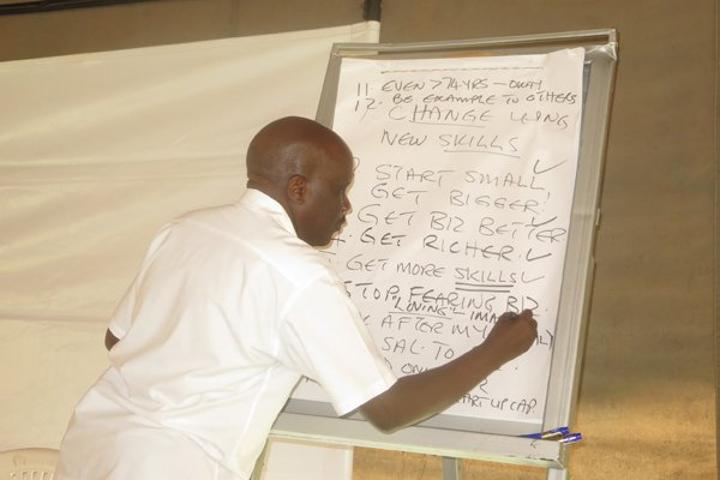 11. EVEN > 74 YRS — OKAY
12. BE EXAMPLE TO OTHERS
CHANGE USING
NEW SKILLS
START SMALL,
GET BIGGER!
GET BIZ BETTER
GET RICHER.
GET MORE SKILLS
STOP FEARING BIZ.
"LOVING"
AFTER MY
SAL. TO
UP CAP.